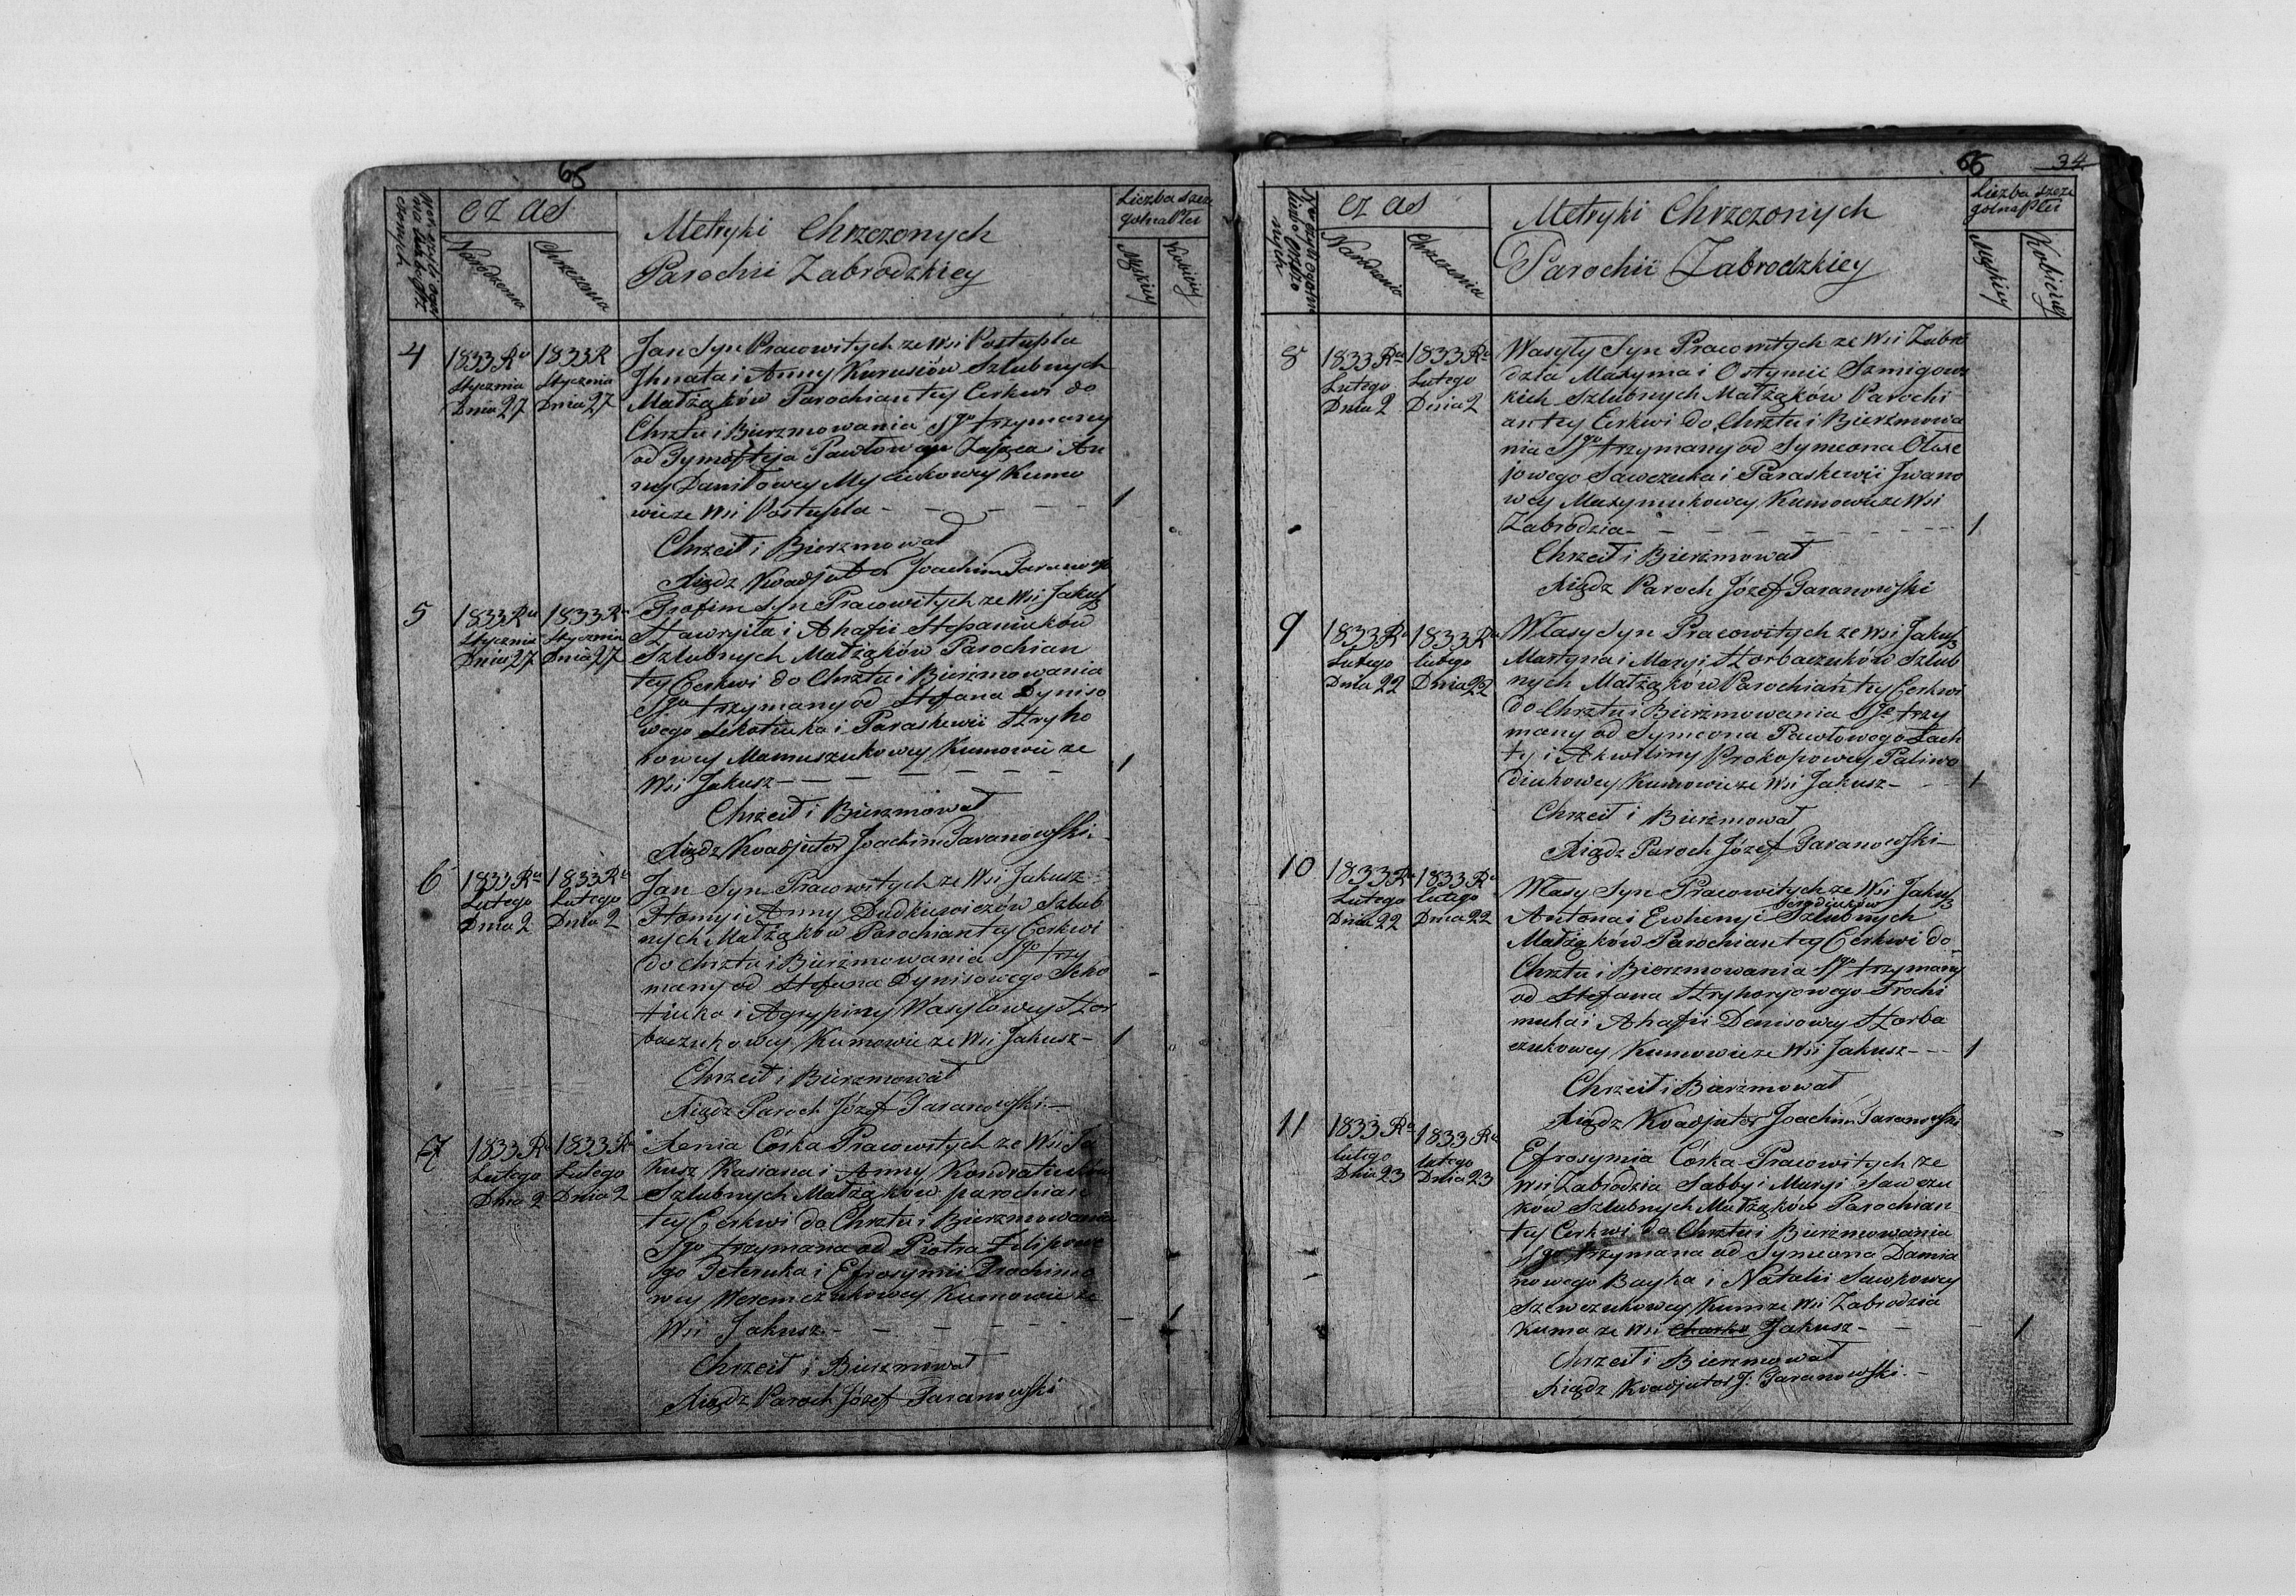 65
czas
Metryki Chrzczonych
Parochii Zabrodzkiey
Liczba szcze
golna Płci
Narodzenia
Chrzczenia
Męzkiey
Kobiecey
4
1833 Ru
Stycznia
Dnia 27
1833 R
Stycznia
Dnia 27
Jan Syn Pracowitych ze Wsi Postupla
Ihnata i Anny Kurusiów Szlubnych
Małżąków Parochian tey Cerkwi do
Chrztu i Bierzmowania Sgo trzymany
od Tymofteja Pawłowego Zająca i An
ny Daniłowey Kumo
wie ze Wsi Postupla - - - - -
1
Chrzcił i Bierzmował
Xiądz Koadjutor Joachim Taranowski
5
1833 Ru
Stycznia
Dnia 27
1833 Ru
Stycznia
Dnia 27
Trofim Syn Pracowitych ze Wsi Jakusz
Hawryiła i Ahafii Stepaniuków
Szlubnych Małżąków Parochian
tey Cerkwi do Chrztu i Bierzmowania
Sgo trzymany od Stefana Dyniso
wego i Paraskewii Hryho
rowey Mamuszukowey Kumowie ze
Wsi Jakusz - - - - - -
1
Chrzcił i Bierzmował
Xiądz Koadjutor Joachim Taranowski
6
1833 Ru
Lutego
Dnia 2
1833 Ru
Lutego
Dnia 2
Jan Syn Pracowitych ze Wsi Jakusz
Homy i Anny Dudkiewiczów Szlub
nych Małżąków Parochian tey Cerkwi
do Chrztu i Bierzmowania Sgo trzy
many od Stefana Dynisowego Seho
tiuka i Agrypiny Wasylowey Hor
baczukowey Kumowie ze Wsi Jakusz -
1
Chrzcił i Bierzmował
Xiądz Paroch Józef Taranowski
7
1833 Ru
Lutego
Dnia 2
1833 R
Lutego
Dnia 2
Xenia Córka Pracowitych ze Wsi Ja
kusz Kasiana i Anny Kondratiuków
Szlubnych Małżąków parochian
tey Cerkwi do Chrztu i Bierzmowania
Sgo trzymana od Piotra Filipowe
go Peteruka i Efrosynii Trochimo
wey Weremczukowey Kumowie ze
Wsi Jakusz - - - - -
1
Chrzcił i Bierzmował
Xiądz Paroch Józef Taranowski
66
34
czas
Metryki Chrzczonych
Parochii Zabrodzkiey
Liczba szcze
golna Płci
Narodzenia
Chrzczenia
Męzkiey
Kobiecey
8
1833 Ru
Lutego
Dnia 2
1833 Ru
Lutego
Dnia 2
Wasyły Syn Pracowitych ze Wsi Zabro
dzia Maxyma i Ostymii Szmigows
kich Szlubnych Małżąków Parochi
an tey Cerkwi do Chrztu i Bierzmowa
nia Sgo trzymany od Symeona Olexe
jowego Sawczuka i Paraskewii Iwano
wey Maxymukowey Kumowie ze Wsi
Zabrodzia - - - - - - -
1
Chrzcił i Bierzmował
Xiądz Paroch Józef Taranowski
9
1833 Ru
Lutego
Dnia 22
1833 Ru
lutego
Dnia 22
Własy Syn Pracowitych ze Wsi Jakusz
Martyna i Maryi Horbaczuków Szlub
nych Małżąków Parochian tey Cerkwi
do Chrztu i Bierzmowania Sgo trzy
many od Symeona Pawłowego Lach
ty i Akwiliny Prokopowey Paliwo
diukowey Kumowie ze Wsi Jakusz - -
1
Chrzcił i Bierzmował
Xiądz Paroch Józef Taranowski
10
1833 Ru
Lutego
Dnia 22
1833 Ru
lutego
Dnia 22
Własy Syn Pracowitych ze Wsi Jakusz
Antona i Ewhenyi Szlubnych
Małżąków Parochian tey Cerkwi do
Chrztu i Bierzmowania Sgo trzymany
od Stefana Hryhoryowego Trochi
muka i Ahafii Denisowey Horba
czukowey Kumowie ze Wsi Jakusz - - -
1
Chrzcił i Bierzmował
Xiądz Koadjutor Joachim Taranowski
11
1833 Ru
lutego
Dnia 23
1833 Ru
lutego
Dnia 23
Efrosymia Córka Pracowitych ze
Wsi Zabrodzia Sabby i Maryi Sawczu
ków Szlubnych Małżąków Parochian
tey Cerkwi do Chrztu i Bierzmowania
Sgo trzymana od Symeona Damia
nowego Bayka i Natalii Sawkowey
Szewczukowey Kum ze Wsi Zabrodzia
Kuma ze Wsi Jakusz - - -
1
Chrzcił i Bierzmował
Xiądz Koadjutor J: Taranowski